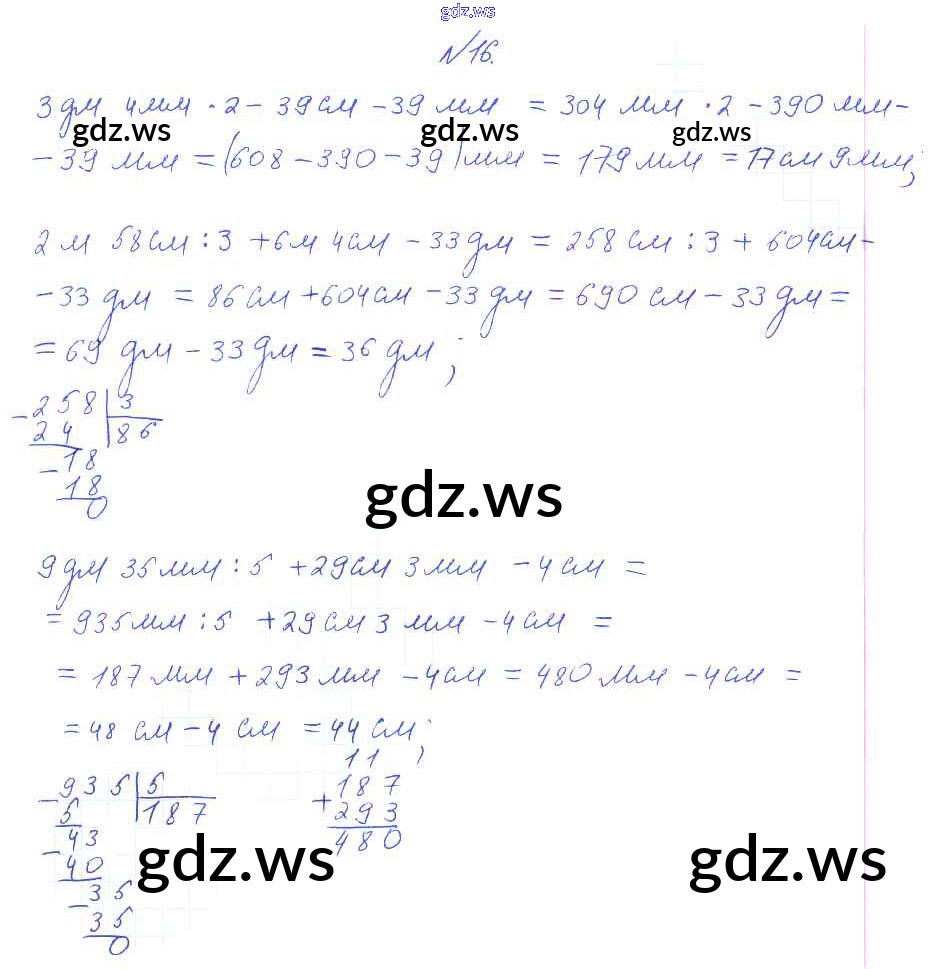 gdz.ws
№16.
3 дм 4 мм · 2 - 39 см - 39 мм = 304 мм · 2 - 390 мм -
gdz.ws gdz.ws gdz.ws
- 39 мм = (608 - 390 - 39) мм = 179 мм = 17 см 9 мм;
2 м 58 см : 3 + 6 м 4 см - 33 дм = 258 см : 3 + 604 см -
- 33 дм = 86 см + 604 см - 33 дм = 690 см - 33 дм =
= 69 дм - 33 дм = 36 дм;
- 258 | 3
24 | 86
- 18
18
0
gdz.ws
9 дм 35 мм : 5 + 29 см 3 мм - 4 см =
= 935 мм : 5 + 29 см 3 мм - 4 см =
= 187 мм + 293 мм - 4 см = 480 мм - 4 см =
= 48 см - 4 см = 44 см;
11
- 935 | 5 187
5 | 187 + 293
43 480
- 40
gdz.ws gdz.ws
- 35
35
0